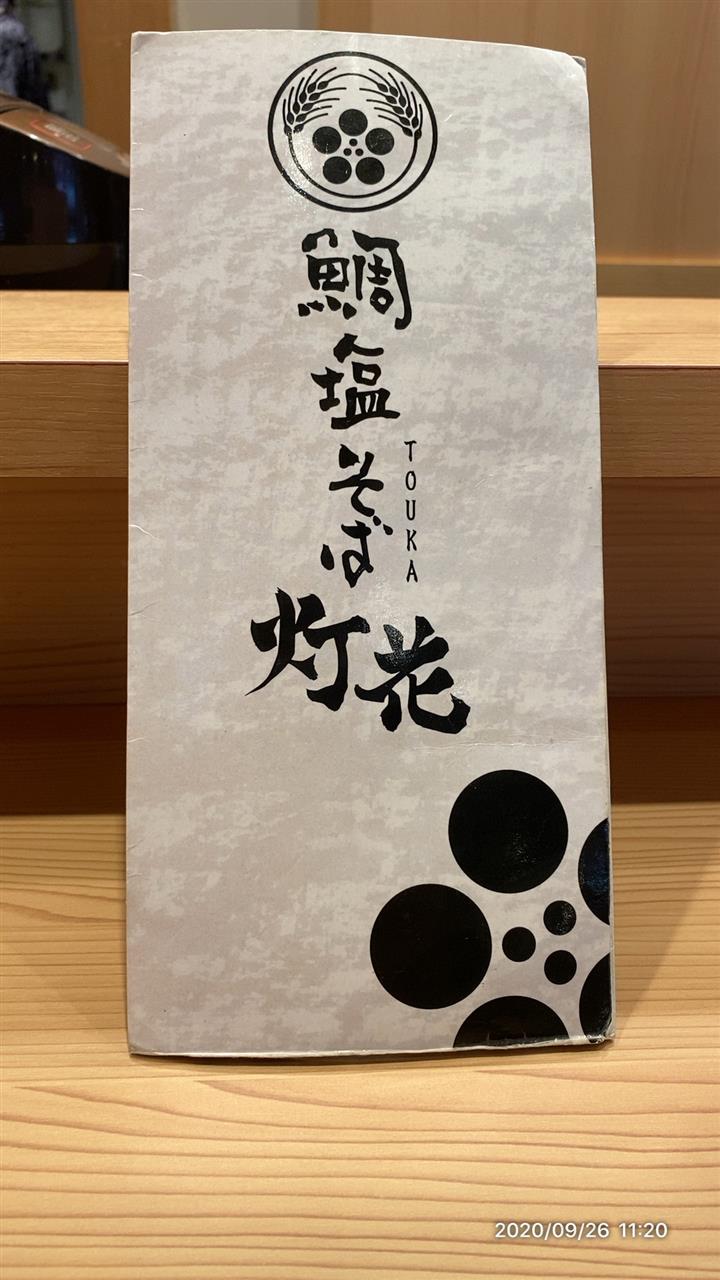 鯛塩そば
TOUKA
灯花
2020/09/26 11:20